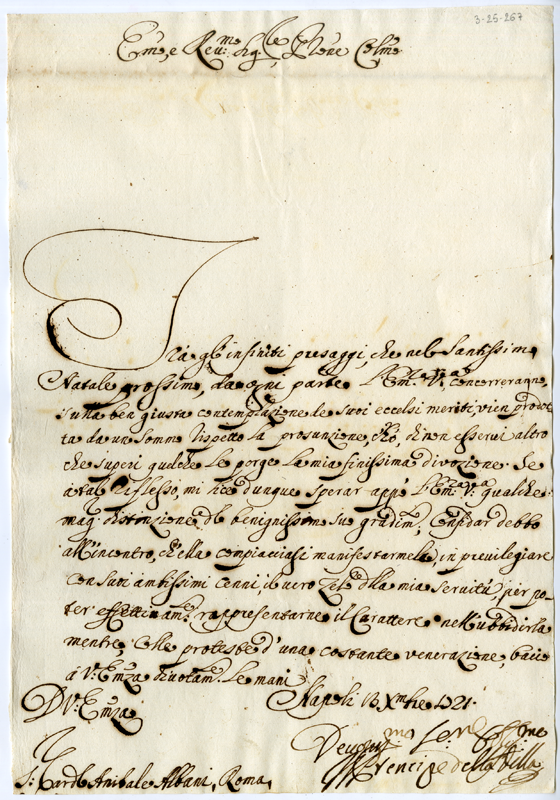 3-25-267
Em.e, e Reu.mo Sig.re P.rone Col.mo
Trà gl'infiniti presaggi, che nel Santissim.
Natale prossimo, da ogni parte l'Em.za V.a concorreranno
sulla ben giusta contemplazione de suoi eccelsi meriti, vien prodot
ta da un sommo rispetto la prosunzione, ch'hò, di non esserui altro
che superi quelche le porge la mia finissima divozione. Se
a tal riflesso, mi lice dunque sperar app.o l'Em.za V.a qualche
mag. distinzione del benignissimo suo gradim.to, confidar debbo
all'incontro, ch'ella compiacciasi manifestarmela in previlegiare
con suoi ambitissimi cenni, il uero zelo della mia seruitù, per po-
ter effettiuam.e rappresentarne il Carattere nell'ubbidirla
mentre, colle proteste d'una costante venerazione, bacio
à V.a Em.za diuotam.e le mani Napoli 13 Xmbre 1721.
D V.a Em.za
S.r Card.le Anibale Albani, Roma
Prencipe della Villa